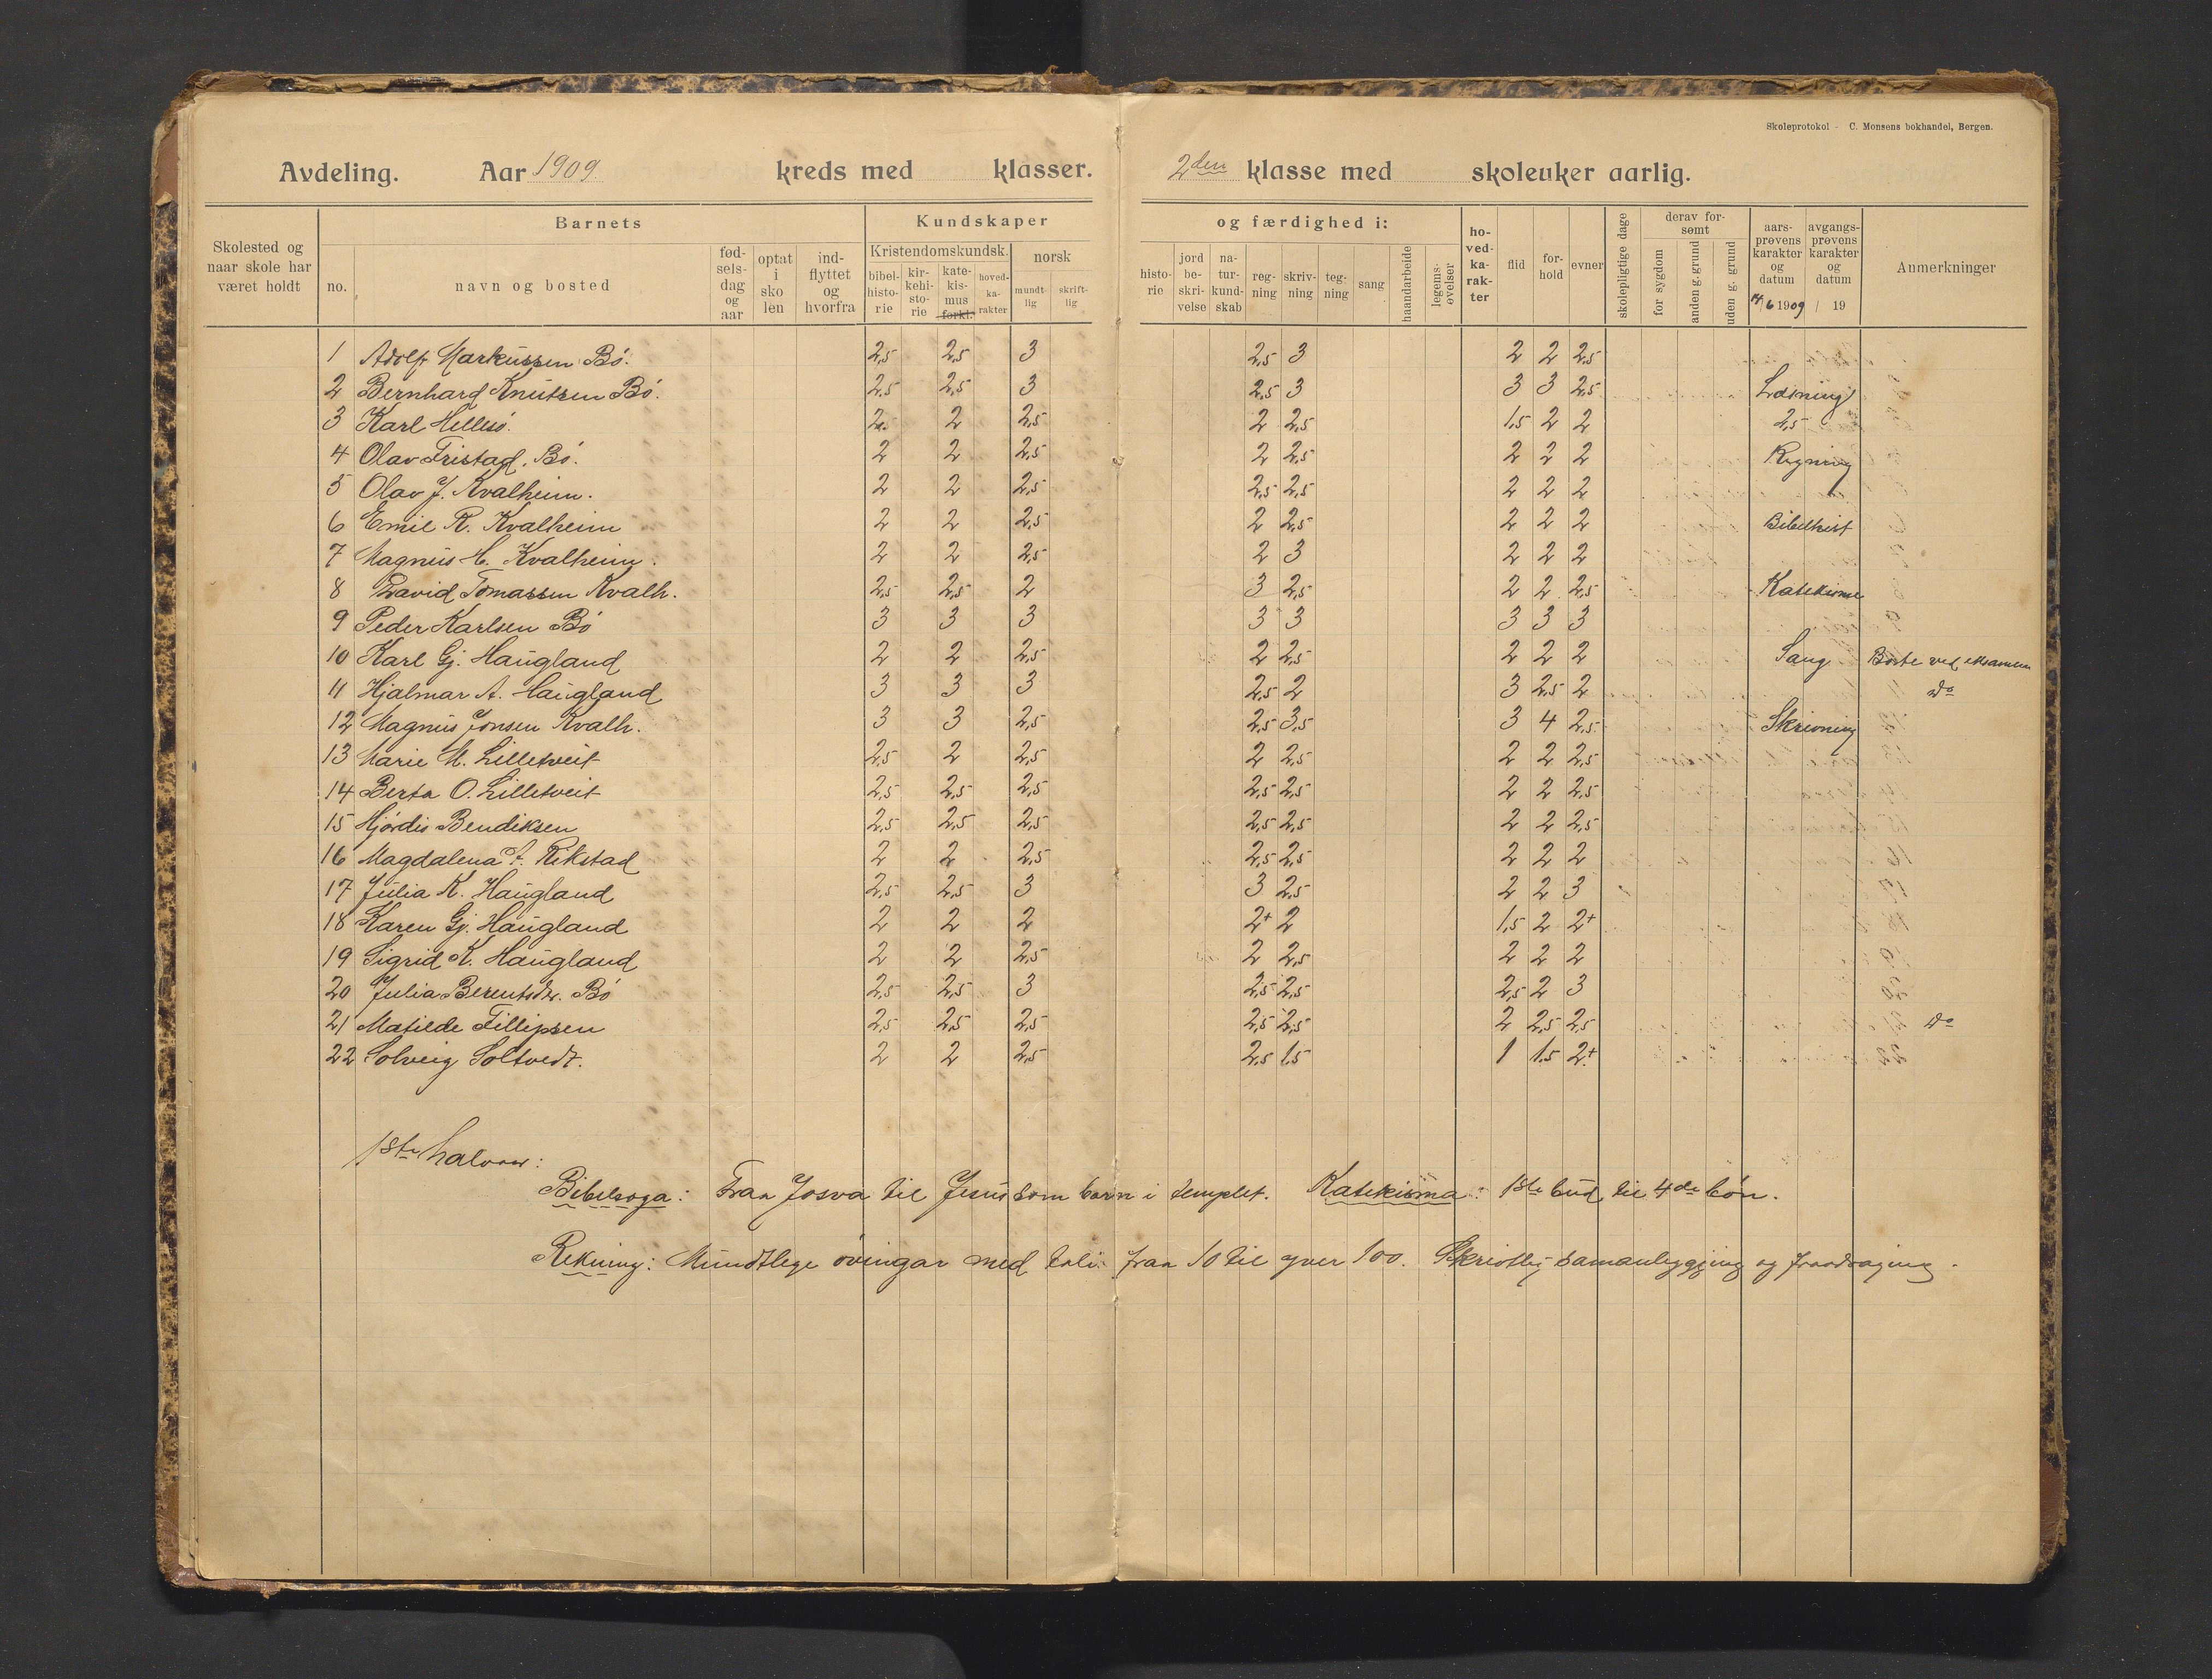 Skoleprotokol - C. Monsens bokhandel, Bergen.
Avdeling. Aar 1909 kreds med klasser. 2den klasse med skoleuker aarlig.
Skolested og naar skole har været holdt
Barnets
no. navn og bosted
fødselsdag og aar
optat i skolen
indflyttet og hvorfra
Kundskaper og færdighed i:
Kristendomskundsk.
bibelhistorie
kirkehistorie
katekismus forkl.
hovedkarakter
norsk
mundtlig
skriftlig
historie
jordbeskrivelse
naturkundskab
regning
skrivning
tegning
sang
haandarbeide
legemsøvelser
hovedkarakter
flid
forhold
evner
skolepligtige dage
derav forsømt
for sygdom
anden g. grund
uden g. grund
aarsprøvens karakter og datum 14/6 1909
avgangsprøvens karakter og datum / 19
Anmerkninger
1 Adolf Markussen Bø. 2,5 2,5 3 2,5 3 2 2 2,5
2 Bernhard Knutsen Bø. 2,5 2,5 3 2,5 3 3 3 2,5 Læsning
3 Karl Hellesø. 2 2 2,5 2 2,5 1,5 2 2 2,5
4 Olav Fristad. Bø. 2 2 2,5 2 2,5 2 2 2 Regning
5 Olav J. Kvalheim. 2 2 2,5 2,5 2,5 2 2 2
6 Emil R. Kvalheim 2 2 2,5 2 2,5 2 2 2 Bibelhist
7 Magnus H. Kvalheim. 2 2 2,5 2 3 2 2 2
8 David Tomassen Kvalh. 2,5 2,5 2 3 2,5 2 2 2,5 Katekisme
9 Peder Karlsen Bø 3 3 3 3 3 3 3 3
10 Karl Gj. Haugland 2 2 2,5 2 2,5 2 2 2 Sang Borte ved eksamen
11 Hjalmar A. Haugland 3 3 3 2,5 2 3 2,5 2 do
12 Magnus Jonsen Kvalh. 3 3 2,5 2,5 3,5 3 4 2,5 Skrivning
13 Marie M. Lilletveit 2,5 2 2,5 2 2,5 2 2 2,5
14 Berta O. Lilletveit 2,5 2,5 2,5 2,5 2,5 2 2 2,5
15 Hjørdis Bendiksen 2,5 2,5 2,5 2,5 2,5 2 2 2,5
16 Magdalena A. Rikstad 2 2 2,5 2,5 2,5 2 2 2
17 Julia K. Haugland 2,5 2,5 3 3 2,5 2 2 3
18 Karen Gj. Haugland 2 2 2 2+ 2 1,5 2 2+
19 Sigrid K. Haugland 2 2 2,5 2 2,5 2 2 2
20 Julia Berentsdtr. Bø 2,5 2,5 3 2,5 2,5 2,5 2 3
21 Matilde Fillipsen 2,5 2,5 2,5 2,5 2,5 2 2,5 2,5 do
22 Solveig Soltvedt. 2 2 2,5 2,5 1,5 1 1,5 2+
1ste halvaar:
Bibelsoga: Fraa Josva til Jesus som barn i templet. Katekisma: 1ste bud til 4de bøn.
Rekning: Mundtlege øvingar med tali fraa 10 til yver 100. Skriftleg samanleggjing og fraadraging.